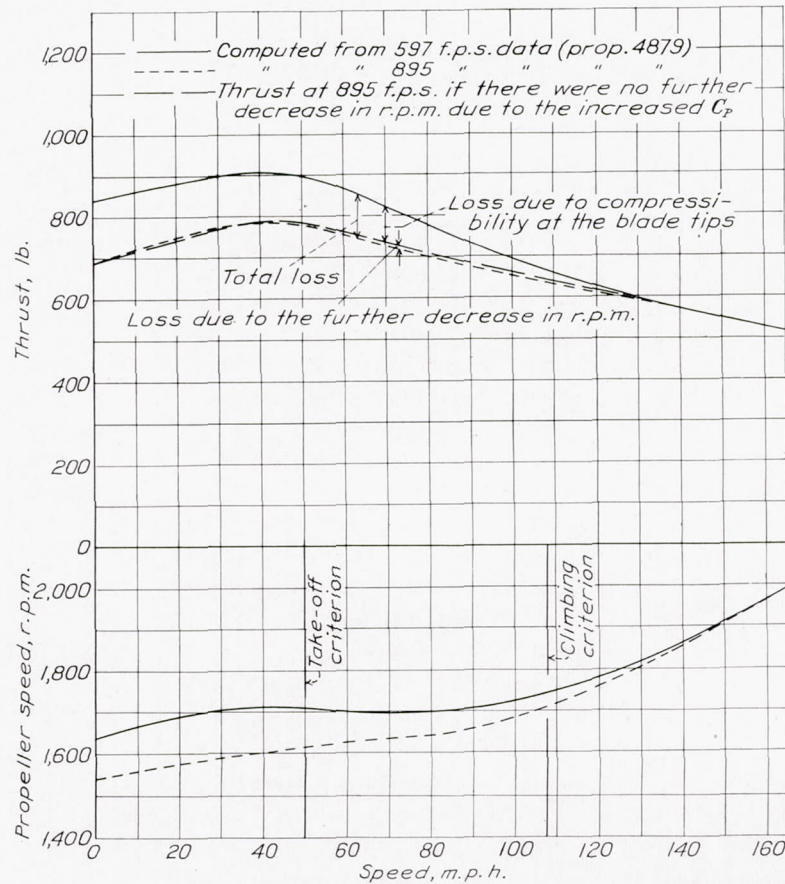 1,200
Computed from 597 f.p.s. data (prop. 4879)
" " 895 " " " "
Thrust at 895 f.p.s. if there were no further
decrease in r.p.m. due to the increased CP
1,000
800
Loss due to compressi-
bility at the blade tips
Total loss
600
Loss due to the further decrease in r.p.m.
400
200
0
Thrust, lb.
2,000
1,800
1,600
1,400
Propeller speed, r.p.m.
Take-off
criterion
Climbing
criterion
0 20 40 60 80 100 120 140 160
Speed, m.p.h.